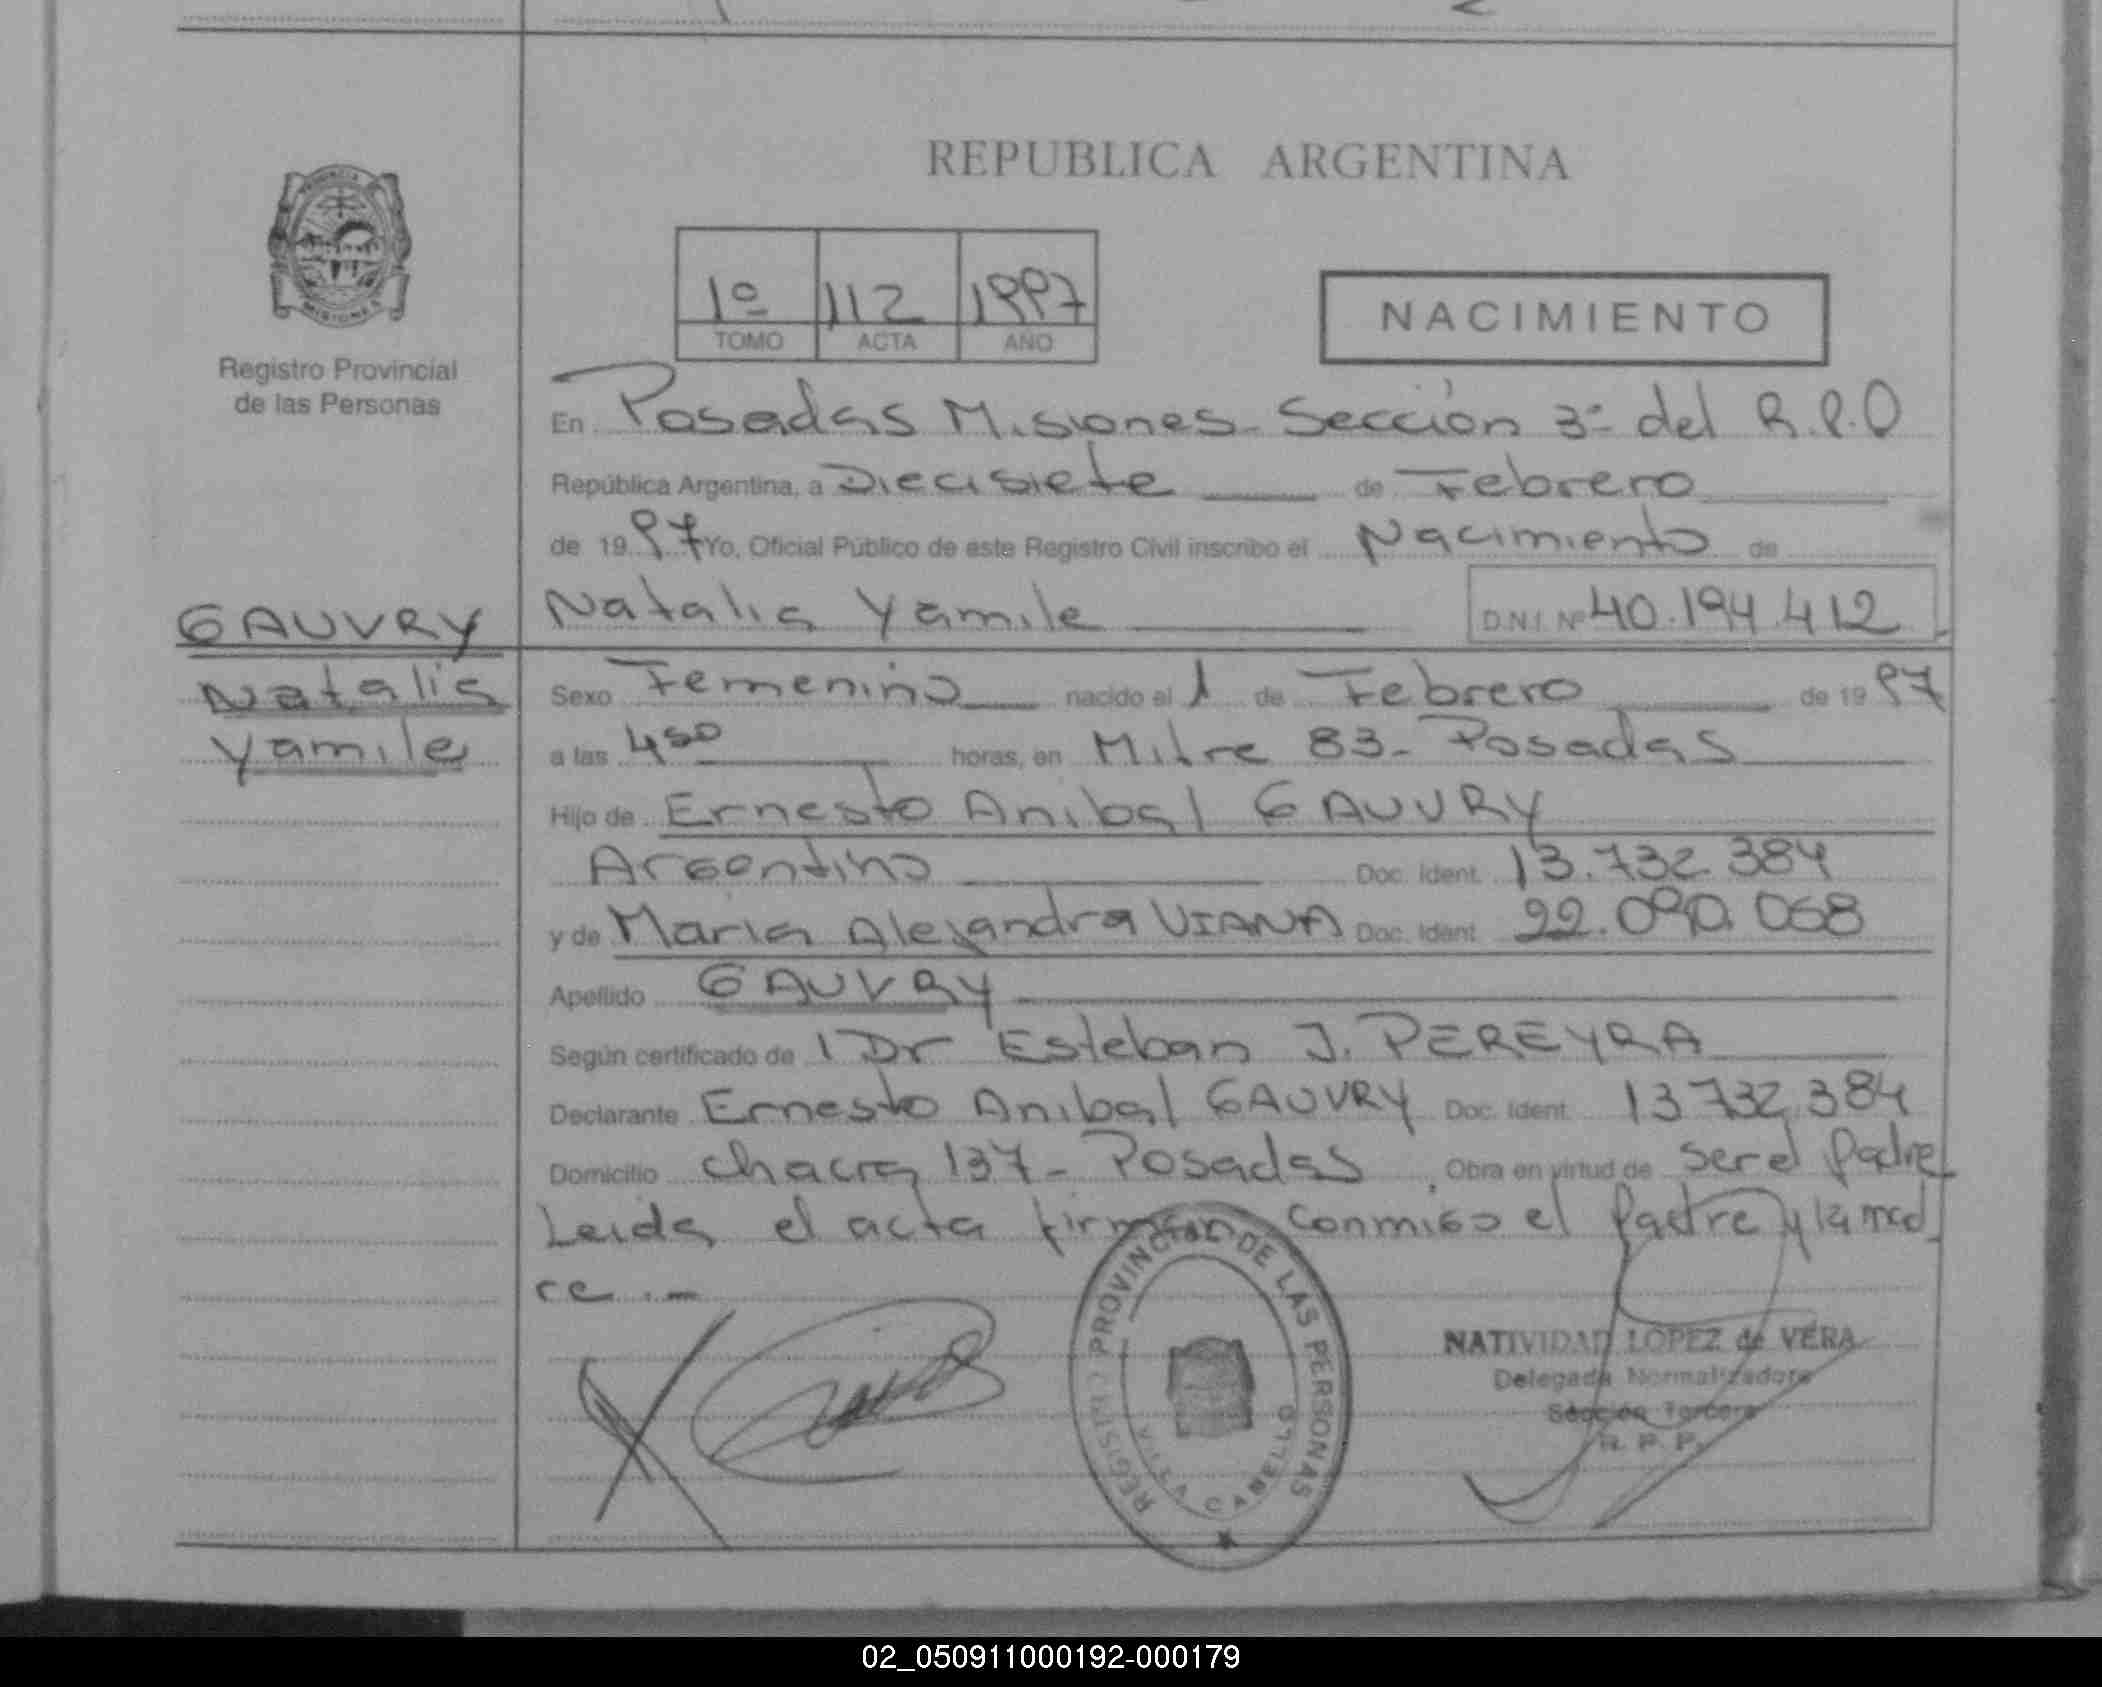 REPUBLICA ARGENTINA
1º 112 1997
TOMO ACTA AÑO
NACIMIENTO
Registro Provincial
de las Personas
En Posadas Misiones - Sección 3ª del R.P.P
República Argentina, a Diecisiete de Febrero
de 1997 Yo, Oficial Público de este Registro Civil inscribo el Nacimiento de
GAUVRY
Natalia
Yamile
Natalia Yamile D.N.I. Nº 40.194.412
Sexo Femenino nacido el 1 de Febrero de 1997
a las 4 50 horas, en Mitre 83 - Posadas
Hijo de Ernesto Anibal GAUVRY
Argentino Doc. Ident. 13.732.384
y de Maria Alejandra VIANA Doc. Ident. 22.090.068
Apellido GAUVRY
Según certificado de l Dr Esteban J. PEREYRA
Declarante Ernesto Anibal GAUVRY Doc. Ident. 13732.384
Domicilio chacra 137 - Posadas, Obra en virtud de ser el Padre
Leida el acta firman conmigo el Padre y la mad
re . -
REGISTRO PROVINCIAL DE LAS PERSONAS
VILLA CABELLO
NATIVIDAD LOPEZ de VERA
Delegada Normalizadora
Sección Tercera
R. P. P.
02_050911000192-000179